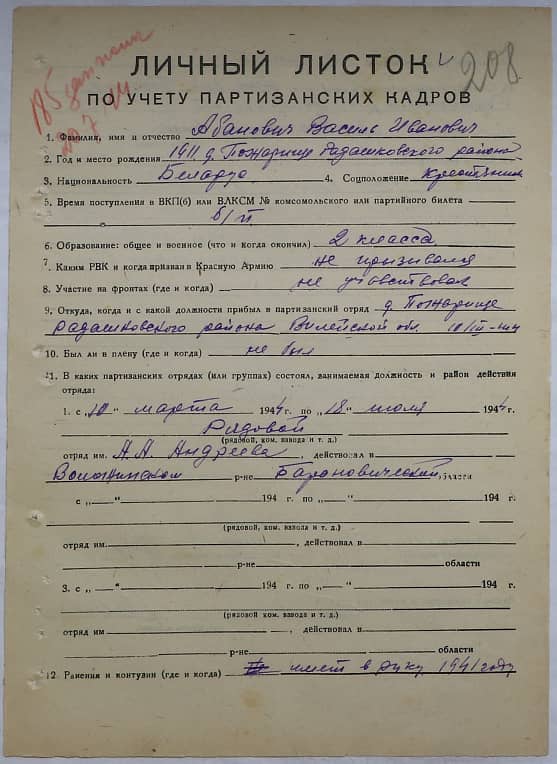 185
208
ЛИЧНЫЙ ЛИСТОК
ПО УЧЕТУ ПАРТИЗАНСКИХ КАДРОВ
1. Фамилия, имя и отчество Абанович Василь Иванович
2. Год и место рождения 1911 д. Пожарище Радашковского района
3. Национальность Беларус 4. Соцположение Крестьянин
5. Время поступления в ВКП(б) или ВЛКСМ № комсомольского или партийного билета
б/п
6. Образование: общее и военное (что и когда окончил) 2 класса
7. Каким РВК и когда призван в Красную Армию не призывался
8. Участие на фронтах (где и когда) не участвовал
9. Откуда, когда и с какой должности прибыл в партизанский отряд д. Пожарище
Радашковского района Вилейской обл. 10/III-44
10. Был ли в плену (где и когда) не был
11. В каких партизанских отрядах (или группах) состоял, занимаемая должность и район действия
отряда:
1. с „10" марта 1944 г. по „18" июля 1944 г.
Рядовой
(рядовой, ком. взвода и т. д.)
отряд им. А.А. Андреева, действовал в
Воложинском р-не Барановической области
с „ — " 194 г. по „ — " 194 г.
(рядовой, ком. взвода и т. д.)
отряд им. , действовал в
р-не области
3. с „ — " 194 г. по „ — " 194 г.
(рядовой, ком. взвода и т. д.)
отряд им , действовал в
р-не области
12. Ранения и контузии (где и когда) имет в руку 1941 году